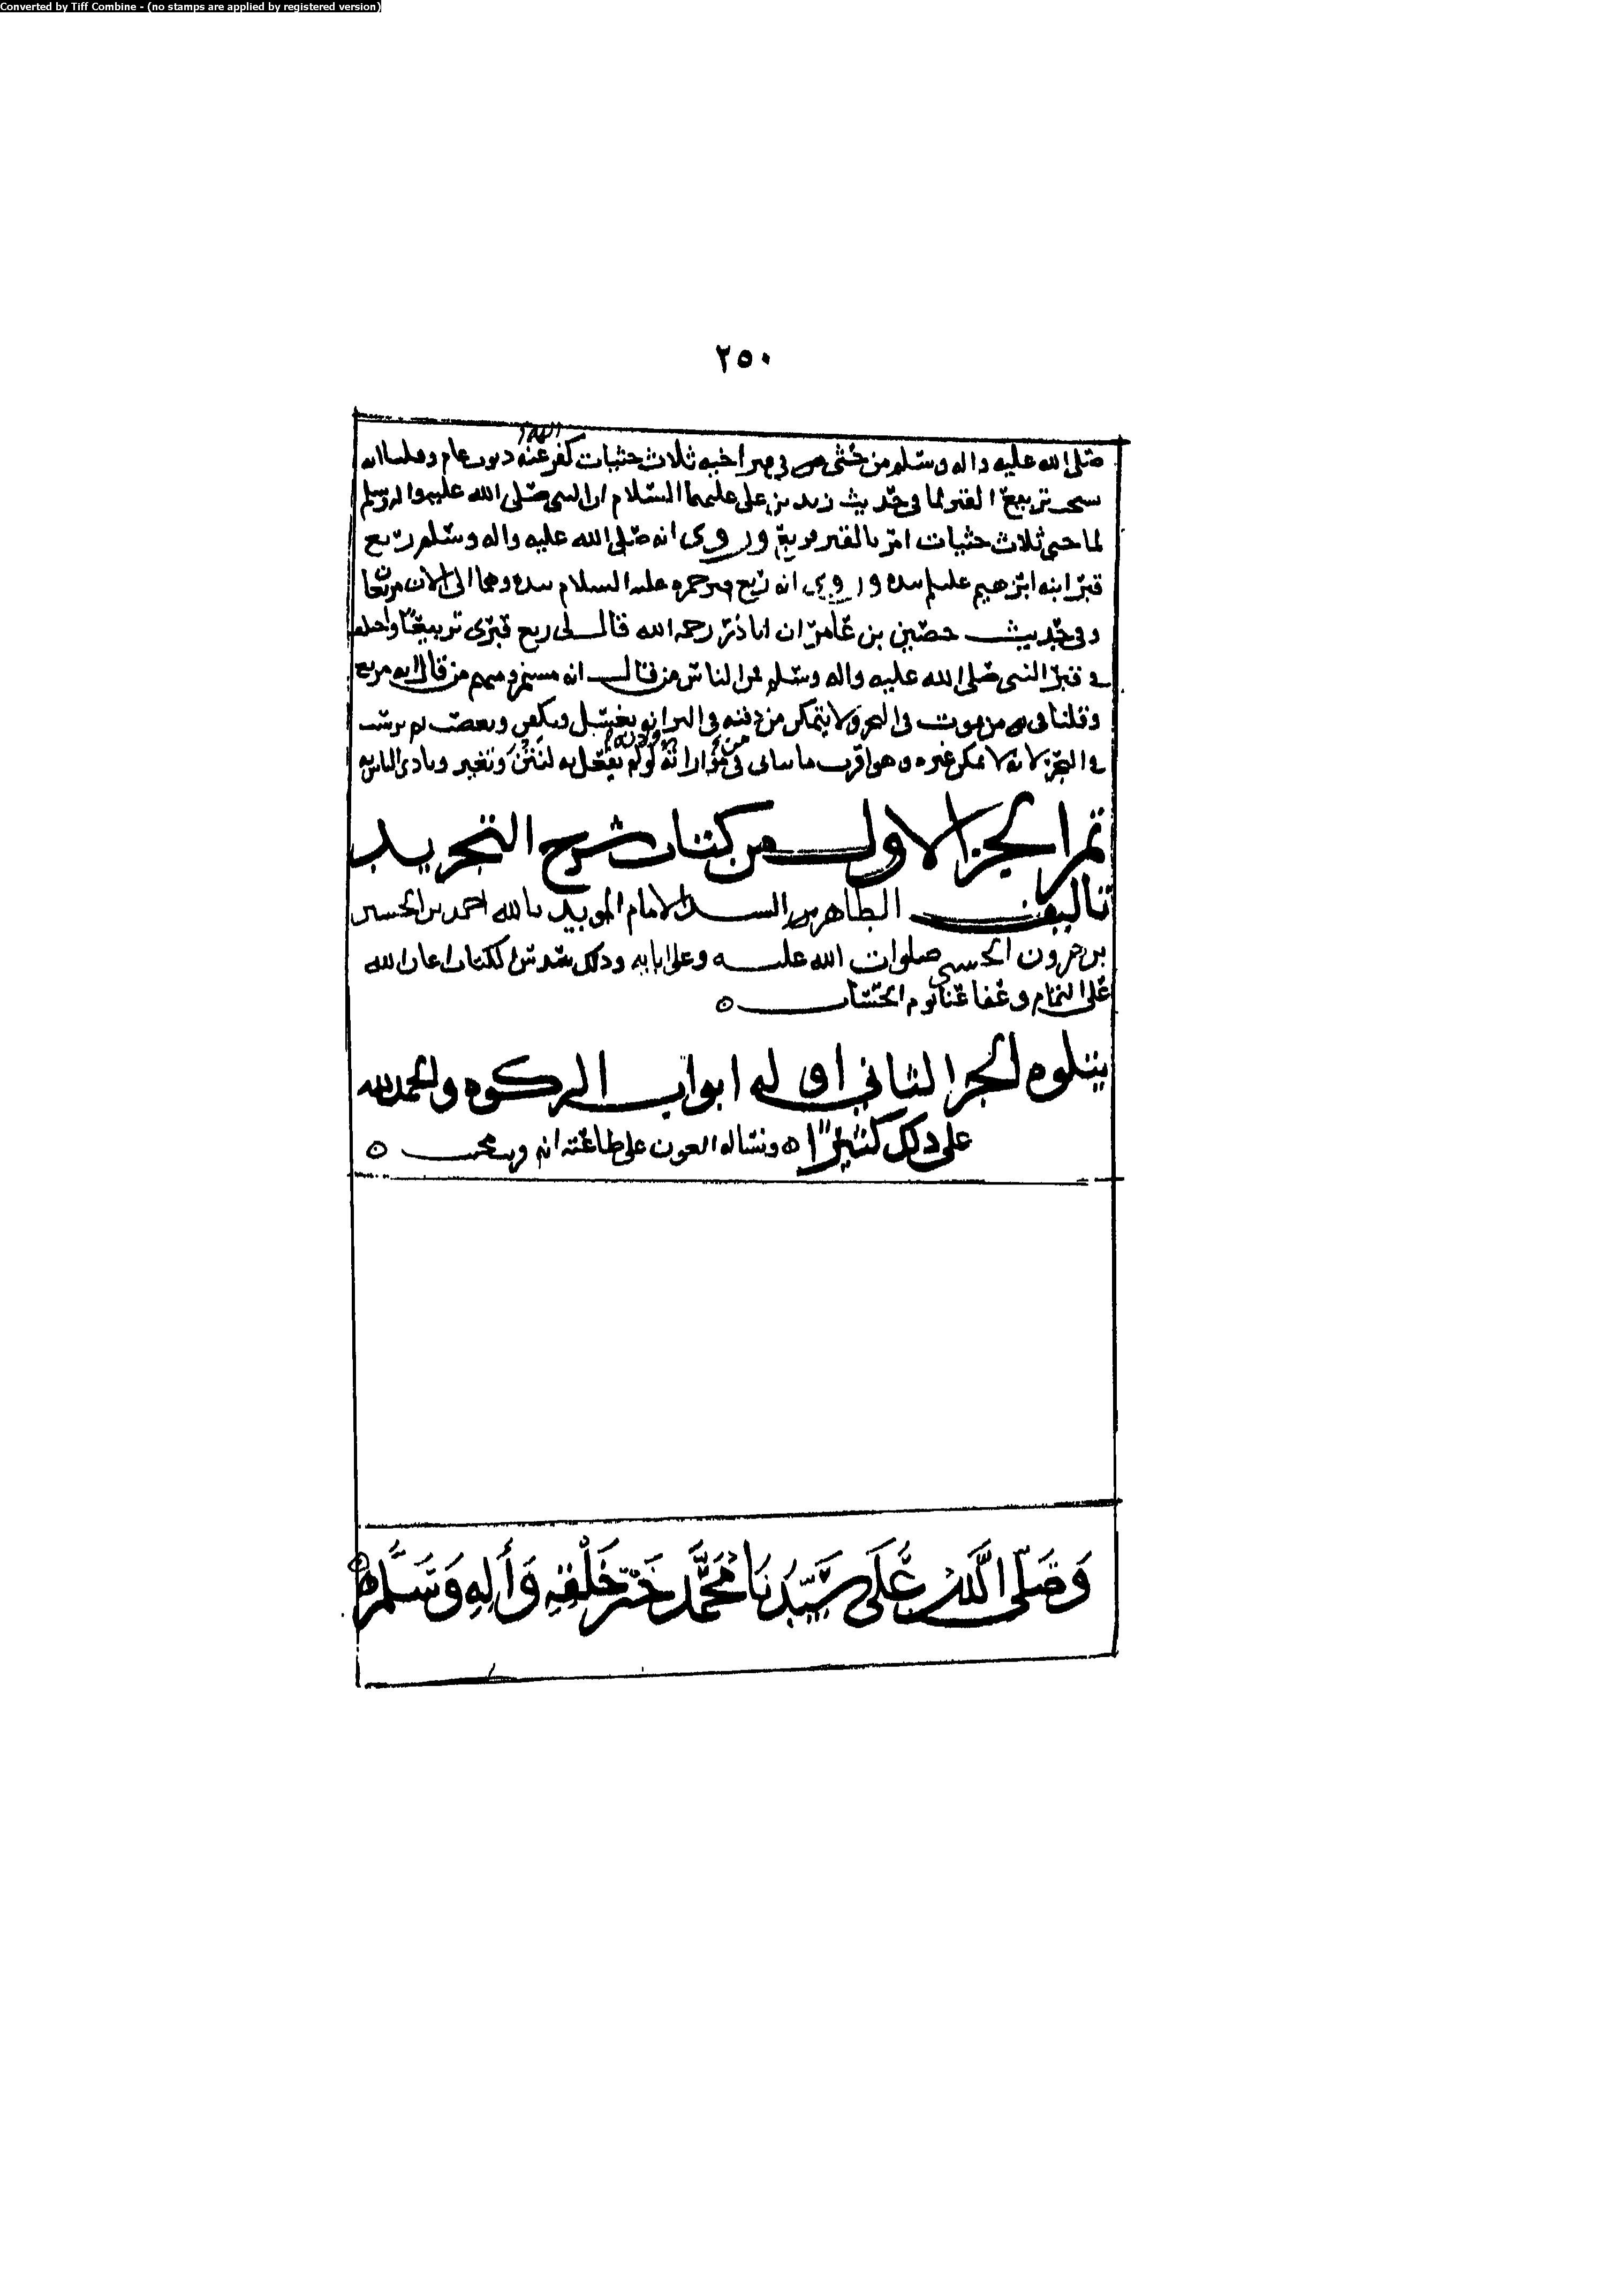 Converted by Tiff Combine - (no stamps are applied by registered version)
٢٥٠
صلى الله عليه واله وسلم من حثى في قبر اخيه ثلاث حثيات كفر عنه ذنوب عام وقلنا انه
الله
يستحب تربيع القبر لما في حديث زيد بن علي عليهما السلام ان النبي صلى الله عليه واله وسلم
لما حثى ثلاث حثيات امر بالقبر فربع وروي انه صلى الله عليه واله وسلم ربع
قبر ابنه ابرهيم عليلم بيده وروي انه ربع قبر حمزه عليه السلام بيده وهما الى الان مربعان
وفي حديث حصين بن عامر ان اباذر رحمه الله قال لي ربع قبري تربيعا واختلف
في قبر النبي صلى الله عليه واله وسلم فمن الناس من قال انه مسنم ومنهم من قال انه مربع
وقلنا في من يموت في البحر ولا يتمكن من دفنه في البر انه يغسل ويكفن ثم يرسب
في البحر لانه لا يمكن غيره وهو اقرب ما يأتي في مواراته ولو لم يفعل به لنتن وتغير وتأذى الناس به
تم الجز الاول من كتاب شرح التجريد
تاليف الطاهر السيد الامام المويد بالله احمد بن الحسين
بن هرون الحسني صلوات الله عليه وعلى ابايه وذلك الكتاب اعان الله
على التمام وعفا عنا يوم الحساب
يتلوه الجز الثاني اوله ابواب الزكوه والحمد لله
على ذلك كثيرا ونساله العون على طاعته انه قريب مجيب
وَصَلّى اللّه عَلَى سَيِّدِنَا مُحَمَّد خَيْر خَلْقِهِ وَأَلِهِ وَسَلَّم